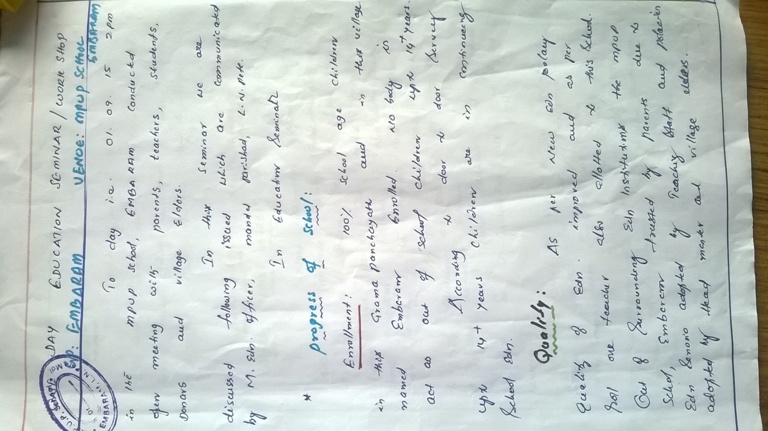 DAY EDUCATION SEMINAR / WORK SHOP
GP: EMBARAM VENOE: MPUP SCHOOL
EMBARAM
To day i.e. 01.09.15 2pm
in the MPUP School, EMBARAM conducted
open meeting with parents, teachers, students,
Donars and village Elders.
In this seminar we are
discussed following issued which are communicated
by M. Edn. officer, mandal parishad, L.N. Pete.
In Education Seminar
* Progress of School:
Enrollment: 100% School age children
in this Grama Panchayate and in this village
named Embaram Enrolled. No body in
act as out of School children upto 14+ years.
According to door to door Survey
upto 14+ years children are in continueing
School Edn.
Quality: As per New Edn policy
Quality of Edn. improved and as per
Roll one teacher also allotted to this School.
Out of Surrounding Edn Institutions the MPUP
School, Embaram trusted by parents due to
Edn adopted by Teaching Staff and
adopted by Head master and village elders.